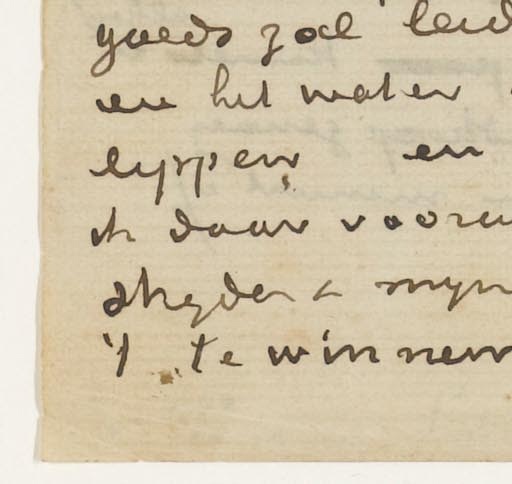 goeds zal leid
en het water
lyppen en
ik daar voor
& myn
't te winnen